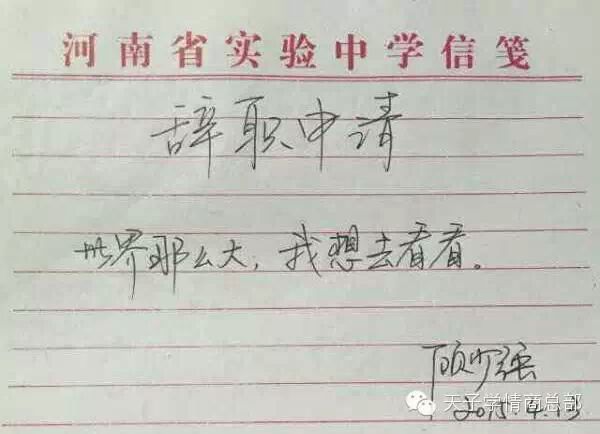 河南省实验中学信笺
辞职申请
世界那么大，我想去看看。
顾少强
2015.4.13
天子学情商总部